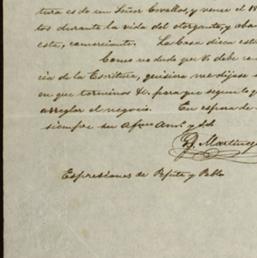 tura es de un Señor Cevallos, y vence el 18
tos durante la vida del otorgante, y aba
este, comerciante. La Casa dicea esta
Como no dudo que V. debe
cia de la Escritura, quisiera me dijese
en que terminos &c. para que segun lo q
arreglar el negocio. En espera de
siempre su Afmo Amº. y S.S.
Martinez
Espresiones de Pepita y Pablo